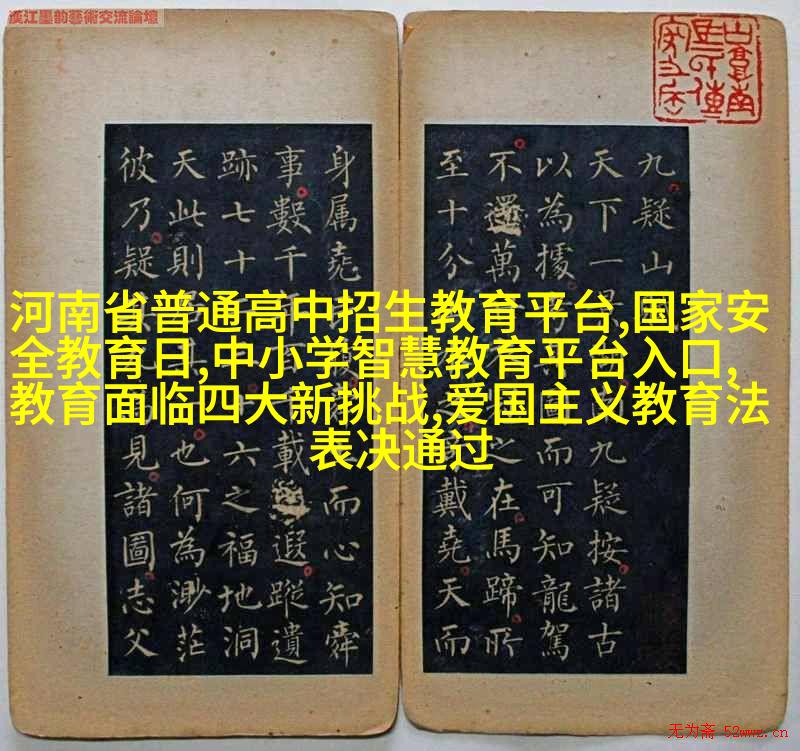 漢江墨韵藝術交流論壇
河南省普通高中招生教育平台,国家安
全教育日,中小学智慧教育平台入口,
教育面临四大新挑战,爱国主义教育法
表决通过
九疑山
天下一九疑按諸古
以為據而可知龍駕
不還萬之在馬蹄所
至十分戴堯天而
身属堯而心知舜
事數千載遐蹤遺
跡七十六之福地洞
天此則也何為渺茫
彼乃疑見諸圖志父
无为斋 52wwz.cn